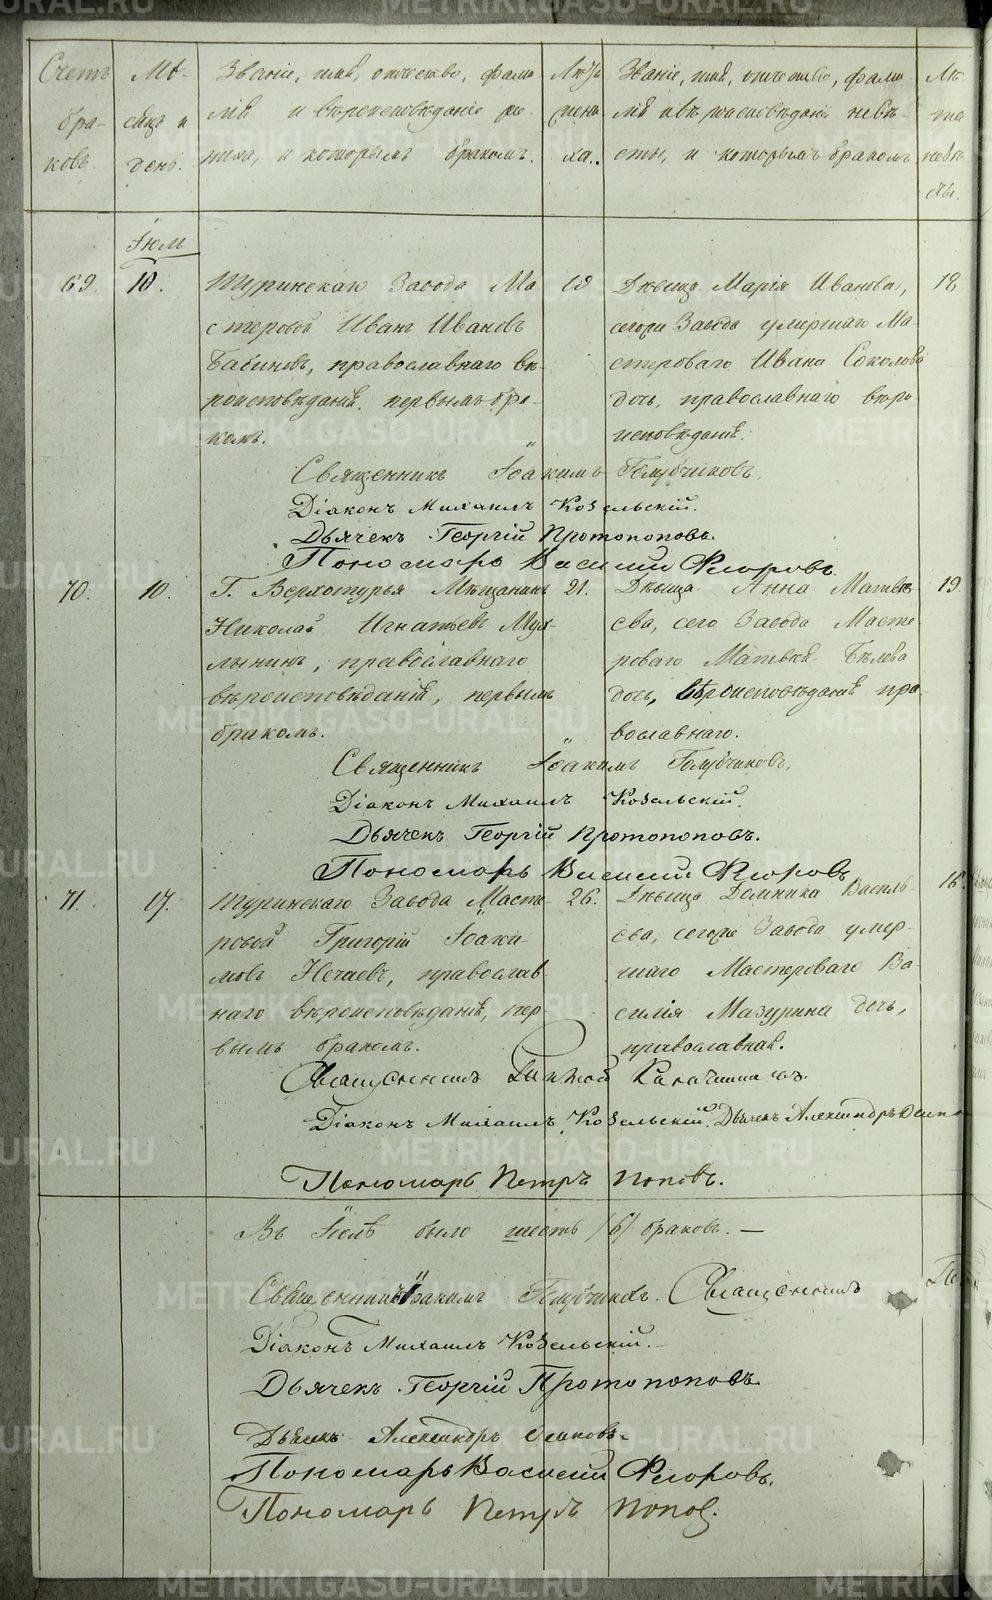 Счетъ бра- ковъ.
Мѣ- сяцъ и день.
Званіе, имя, отчество, фами-
лія и вѣроисповѣданіе же-
ниха, и которымъ бракомъ.
Лѣта жени- ха.
Званіе, имя, отчество, фами-
лія и вѣроисповѣданіе невѣ-
сты, и которымъ бракомъ
Лѣ- та невѣс- ты.
Іюль
69. 10.
Туринскаго Завода Ма-
стеровой Иванъ Ивановъ
Бабиновъ, православнаго вѣ-
роисповѣданія, первымъ бра-
комъ.
19
Дѣвица Марія Иванова,
сегоже Завода умершаго Ма-
стероваго Ивана Соколова
дочь, православнаго вѣро
исповѣданія.
18
Священникъ Іоакимъ Голубчиковъ.
Діаконъ Михаилъ Козельскій.
Дьячекъ Георгій Протопоповъ.
Пономарь Василій Флоровъ.
70. 10.
Г. Верхотурья Мѣщанинъ
Николай Игнатьевъ Мух-
лынинъ, православнаго
вѣроисповѣданія, первымъ
бракомъ.
21.
Дѣвица Анна Матвѣ-
ева, сего Завода Масте-
роваго Матвѣя Бѣлова
дочь, вѣроисповѣданія пра-
вославнаго.
19
Священникъ Іоакимъ Голубчиковъ.
Діаконъ Михаилъ Козельскій.
Дьячекъ Георгій Протопоповъ.
Пономарь Василій Флоровъ
71. 17.
Туринскаго Завода Масте-
ровой Григорій Іоаки-
мовъ Нечаевъ, православ-
наго вѣроисповѣданія, пер-
вымъ бракомъ.
26.
Дѣвица Домника Василь-
ева, сегоже Завода умер-
шаго Мастероваго Ва-
силія Мазурина дочь,
православная.
18
Священникъ
Діаконъ Михаилъ Козельскій. Дьячекъ Александръ Осипо
Пономарь Петръ Поповъ.
Въ Іюлѣ было шесть /6/ браковъ. —
Священникъ Іоакимъ Голубчиковъ. Священникъ
Діаконъ Михаилъ Козельскій.
Дьячекъ Георгій Протопоповъ
Дьячекъ Александръ Осиповъ.
Пономарь Василій Флоровъ.
Пономарь Петръ Попов.
METRIKI.GASO-URAL.RU